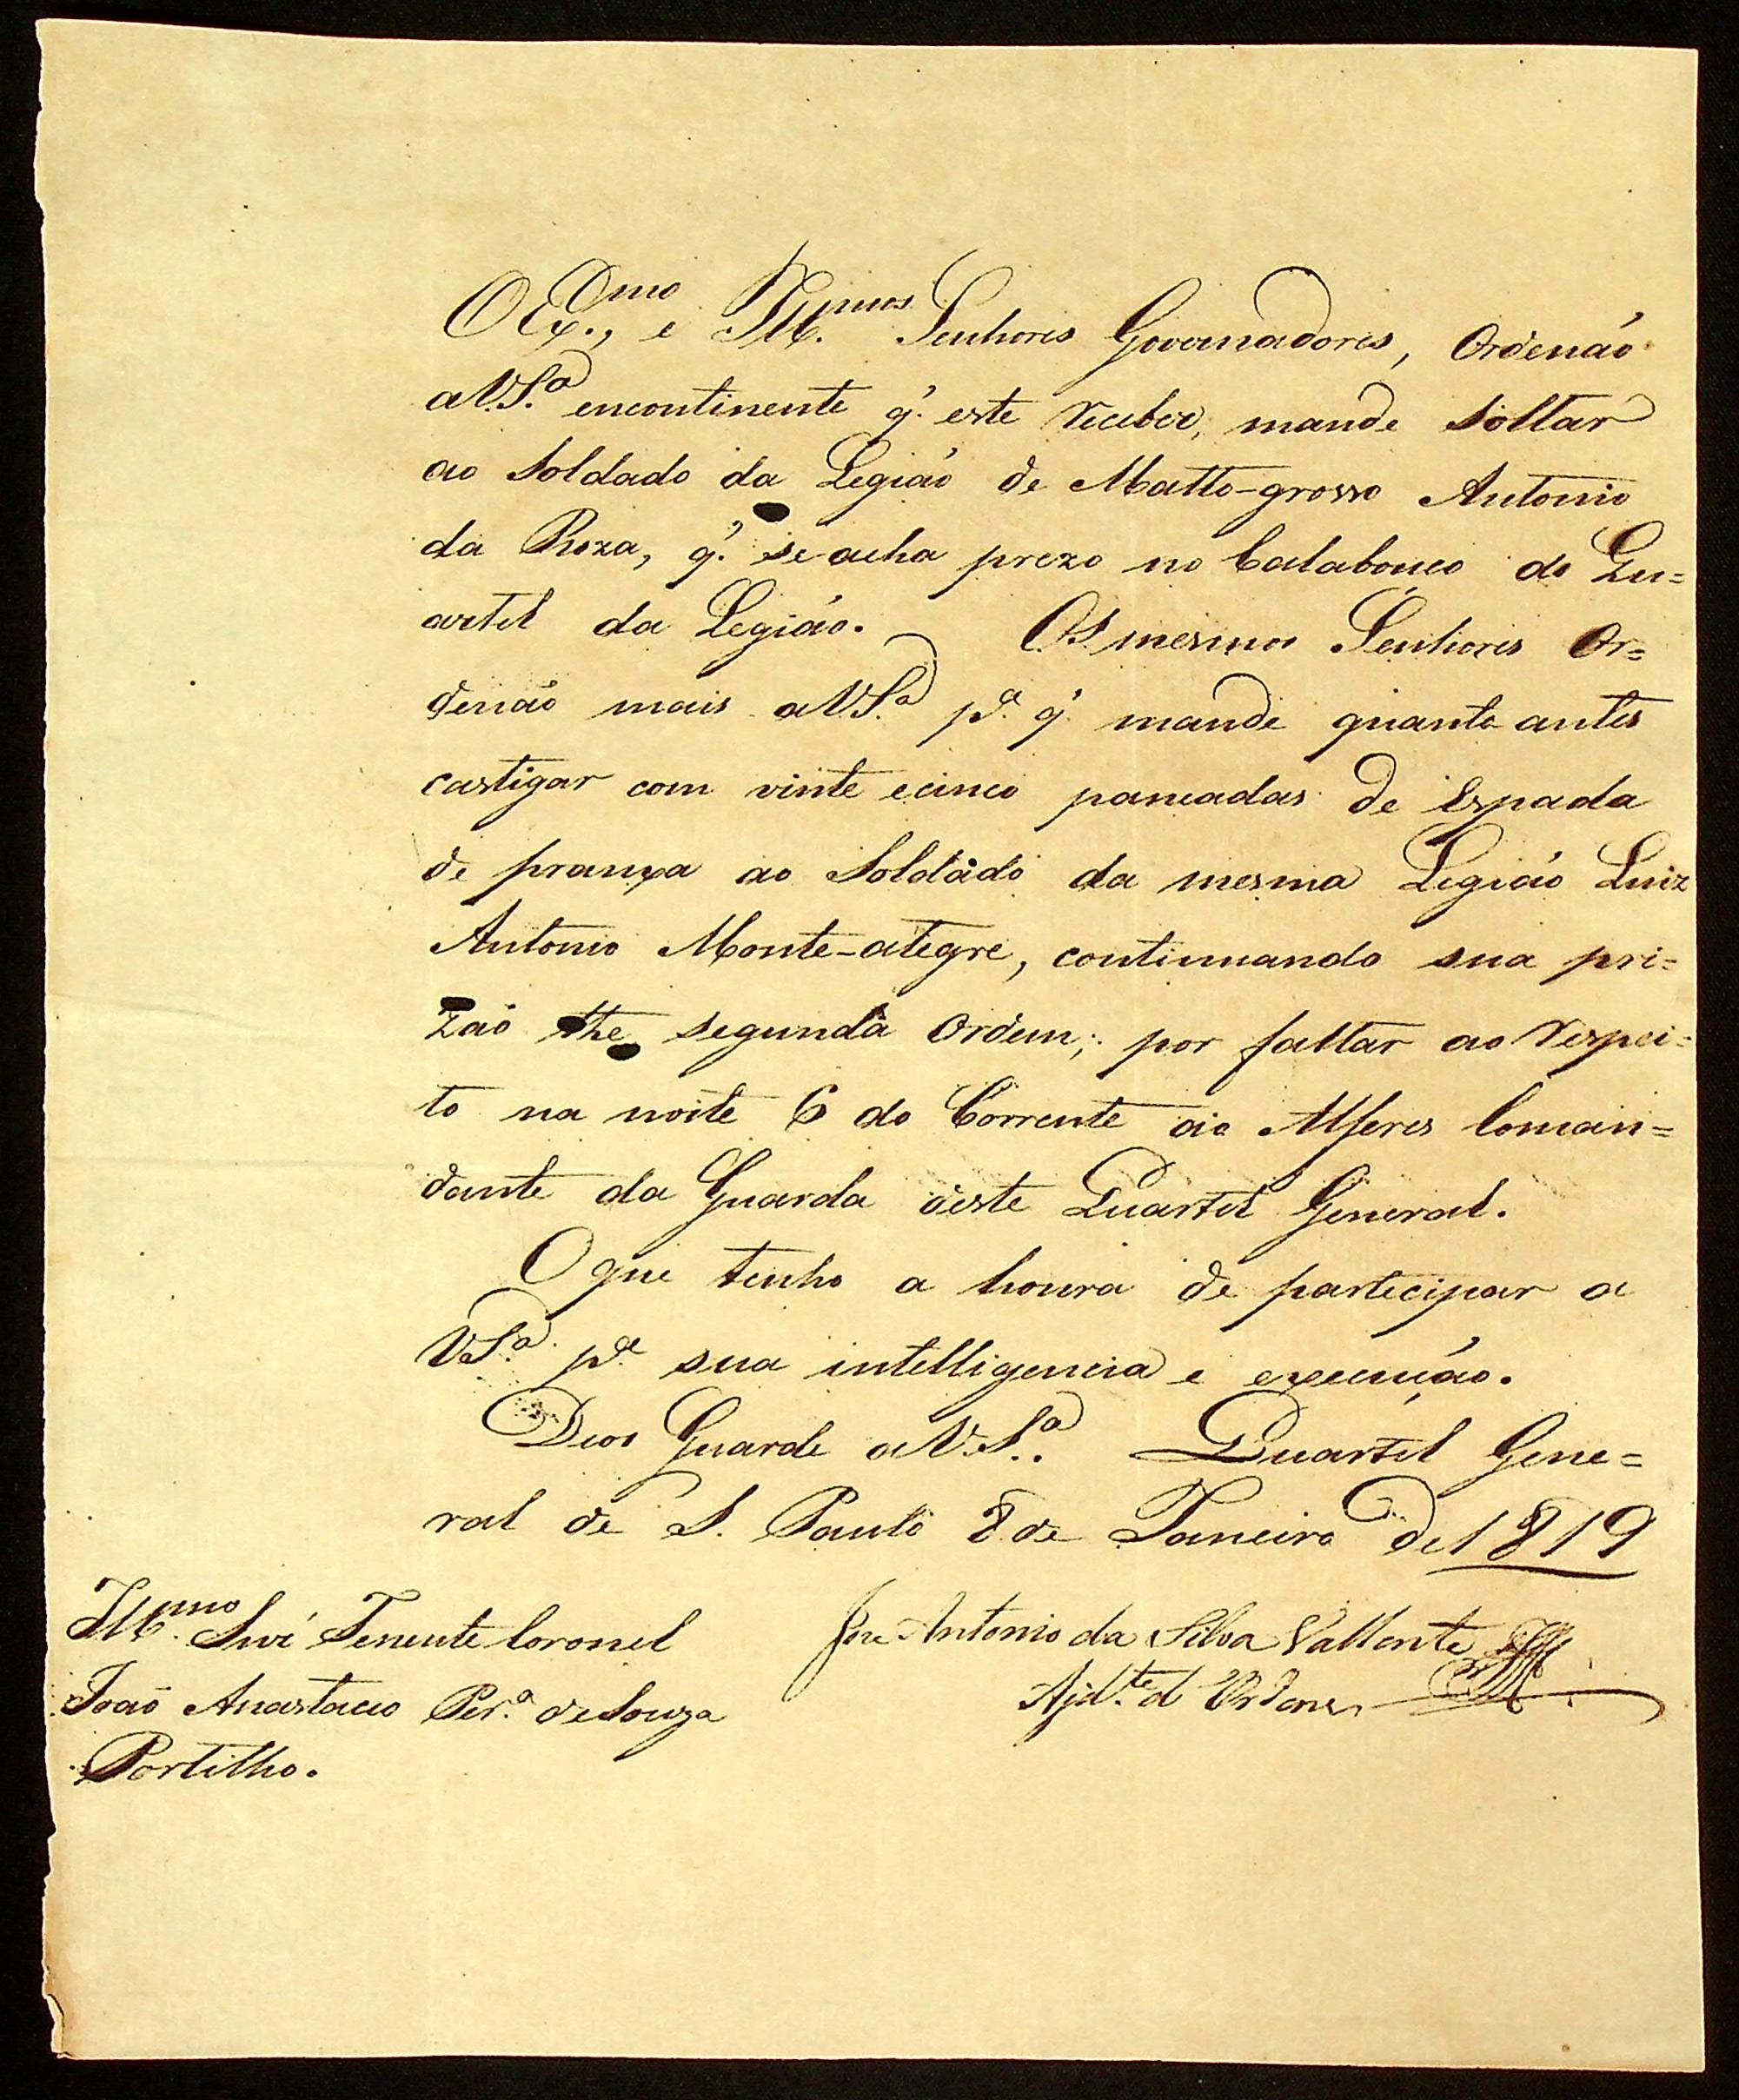 O Ex.mo, e Ill.mos Senhores Governadores, Ordenaõ
aV.S.a encontinente q.' este receber, mande soltar
ao Soldado da Legiaõ de Matto-grosso Antonio
da Roza, q.' se acha prezo no Calabouco do Qu=
artel da Legiaõ. Os mesmos Senhores Or=
denaõ mais aV.S.a p.a q.' mande quanto antes
castigar com vinte ecinco pancadas de Espada
de pranxa ao Soldado da mesma Legiaõ Luiz
Antonio Monte-alegre, continuando sua pri=
zaõ the segunda Ordem; por faltar ao respei=
to na noite 6 do Corrente aio Alferes Coman=
dante da Guarda deste Quartel General.
O que tenho a honra de participar a
V.S.a p.a sua intelligencia e execuçaõ.
Deos Guarde aV.S.a. Quartel Gene=
ral de S. Paulo 8 de Janeiro de 1819
Jose Antonio da Silva Vallente
Ajd.te d Ordens
Ill.mo Snr Tenente Coronel
Joaõ Anastacio Per.a deSouza
Portilho.